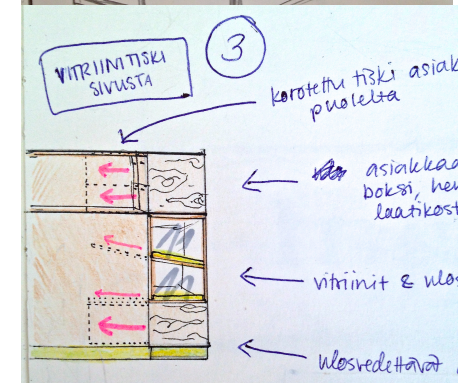 VITRIINITISKI
SIVUSTA
3
korotettu tiski asiak
puolelta
asiakkaa
boksi, hen
laatikost
vitriinit & ulos
ulosvedettävät